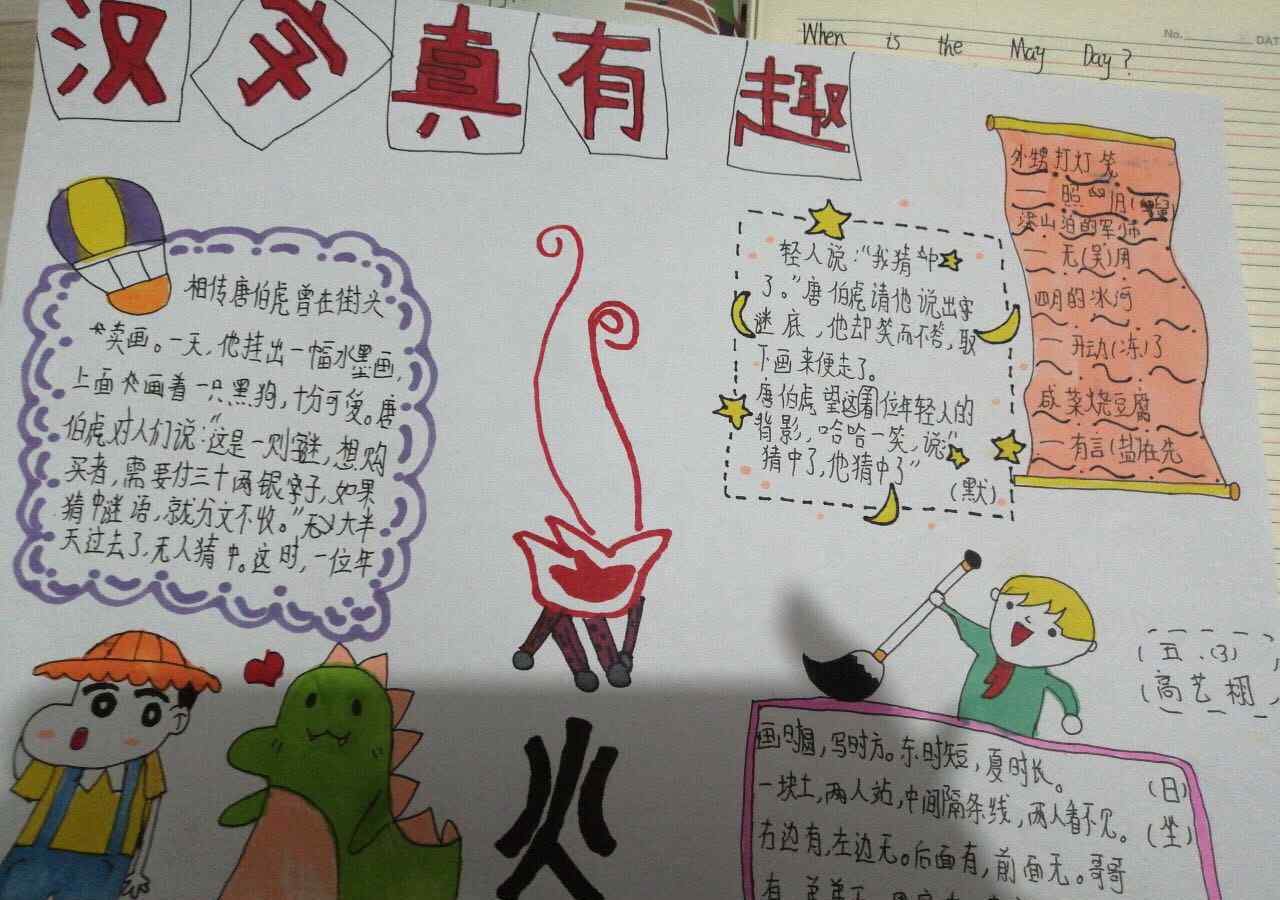 汉字真有趣
When is the May Day?
No.
DAT
相传唐伯虎曾在街头
卖画。一天,他挂出一幅水墨画,
上面画着一只黑狗,十分可爱。唐
伯虎对人们说:“这是一则谜,想购
买者,需要付三十两银字子,如果
猜中谜语,就分文不收。”大半
天过去了,无人猜中。这时,一位年
轻人说:“我猜中
了。”唐伯虎请他说出字
谜底,他却笑而不答,取
下画来便走了。
唐伯虎望这位年轻人的
背影,哈哈一笑,说:“
猜中了,他猜中了”
(默)
外甥打灯笼
一照旧
梁山泊的军师
一无(吴)用
四月的冰河
一开动(冻)了
咸菜烧豆腐
一有言(盐)在先
(五.(3)
(高艺栩
火
画时圆,写时方。冬时短,夏时长。
(日)
一块土,两人站,中间隔条线,两人看不见。
(坐)
右边有,左边无。后面有,前面无。哥哥